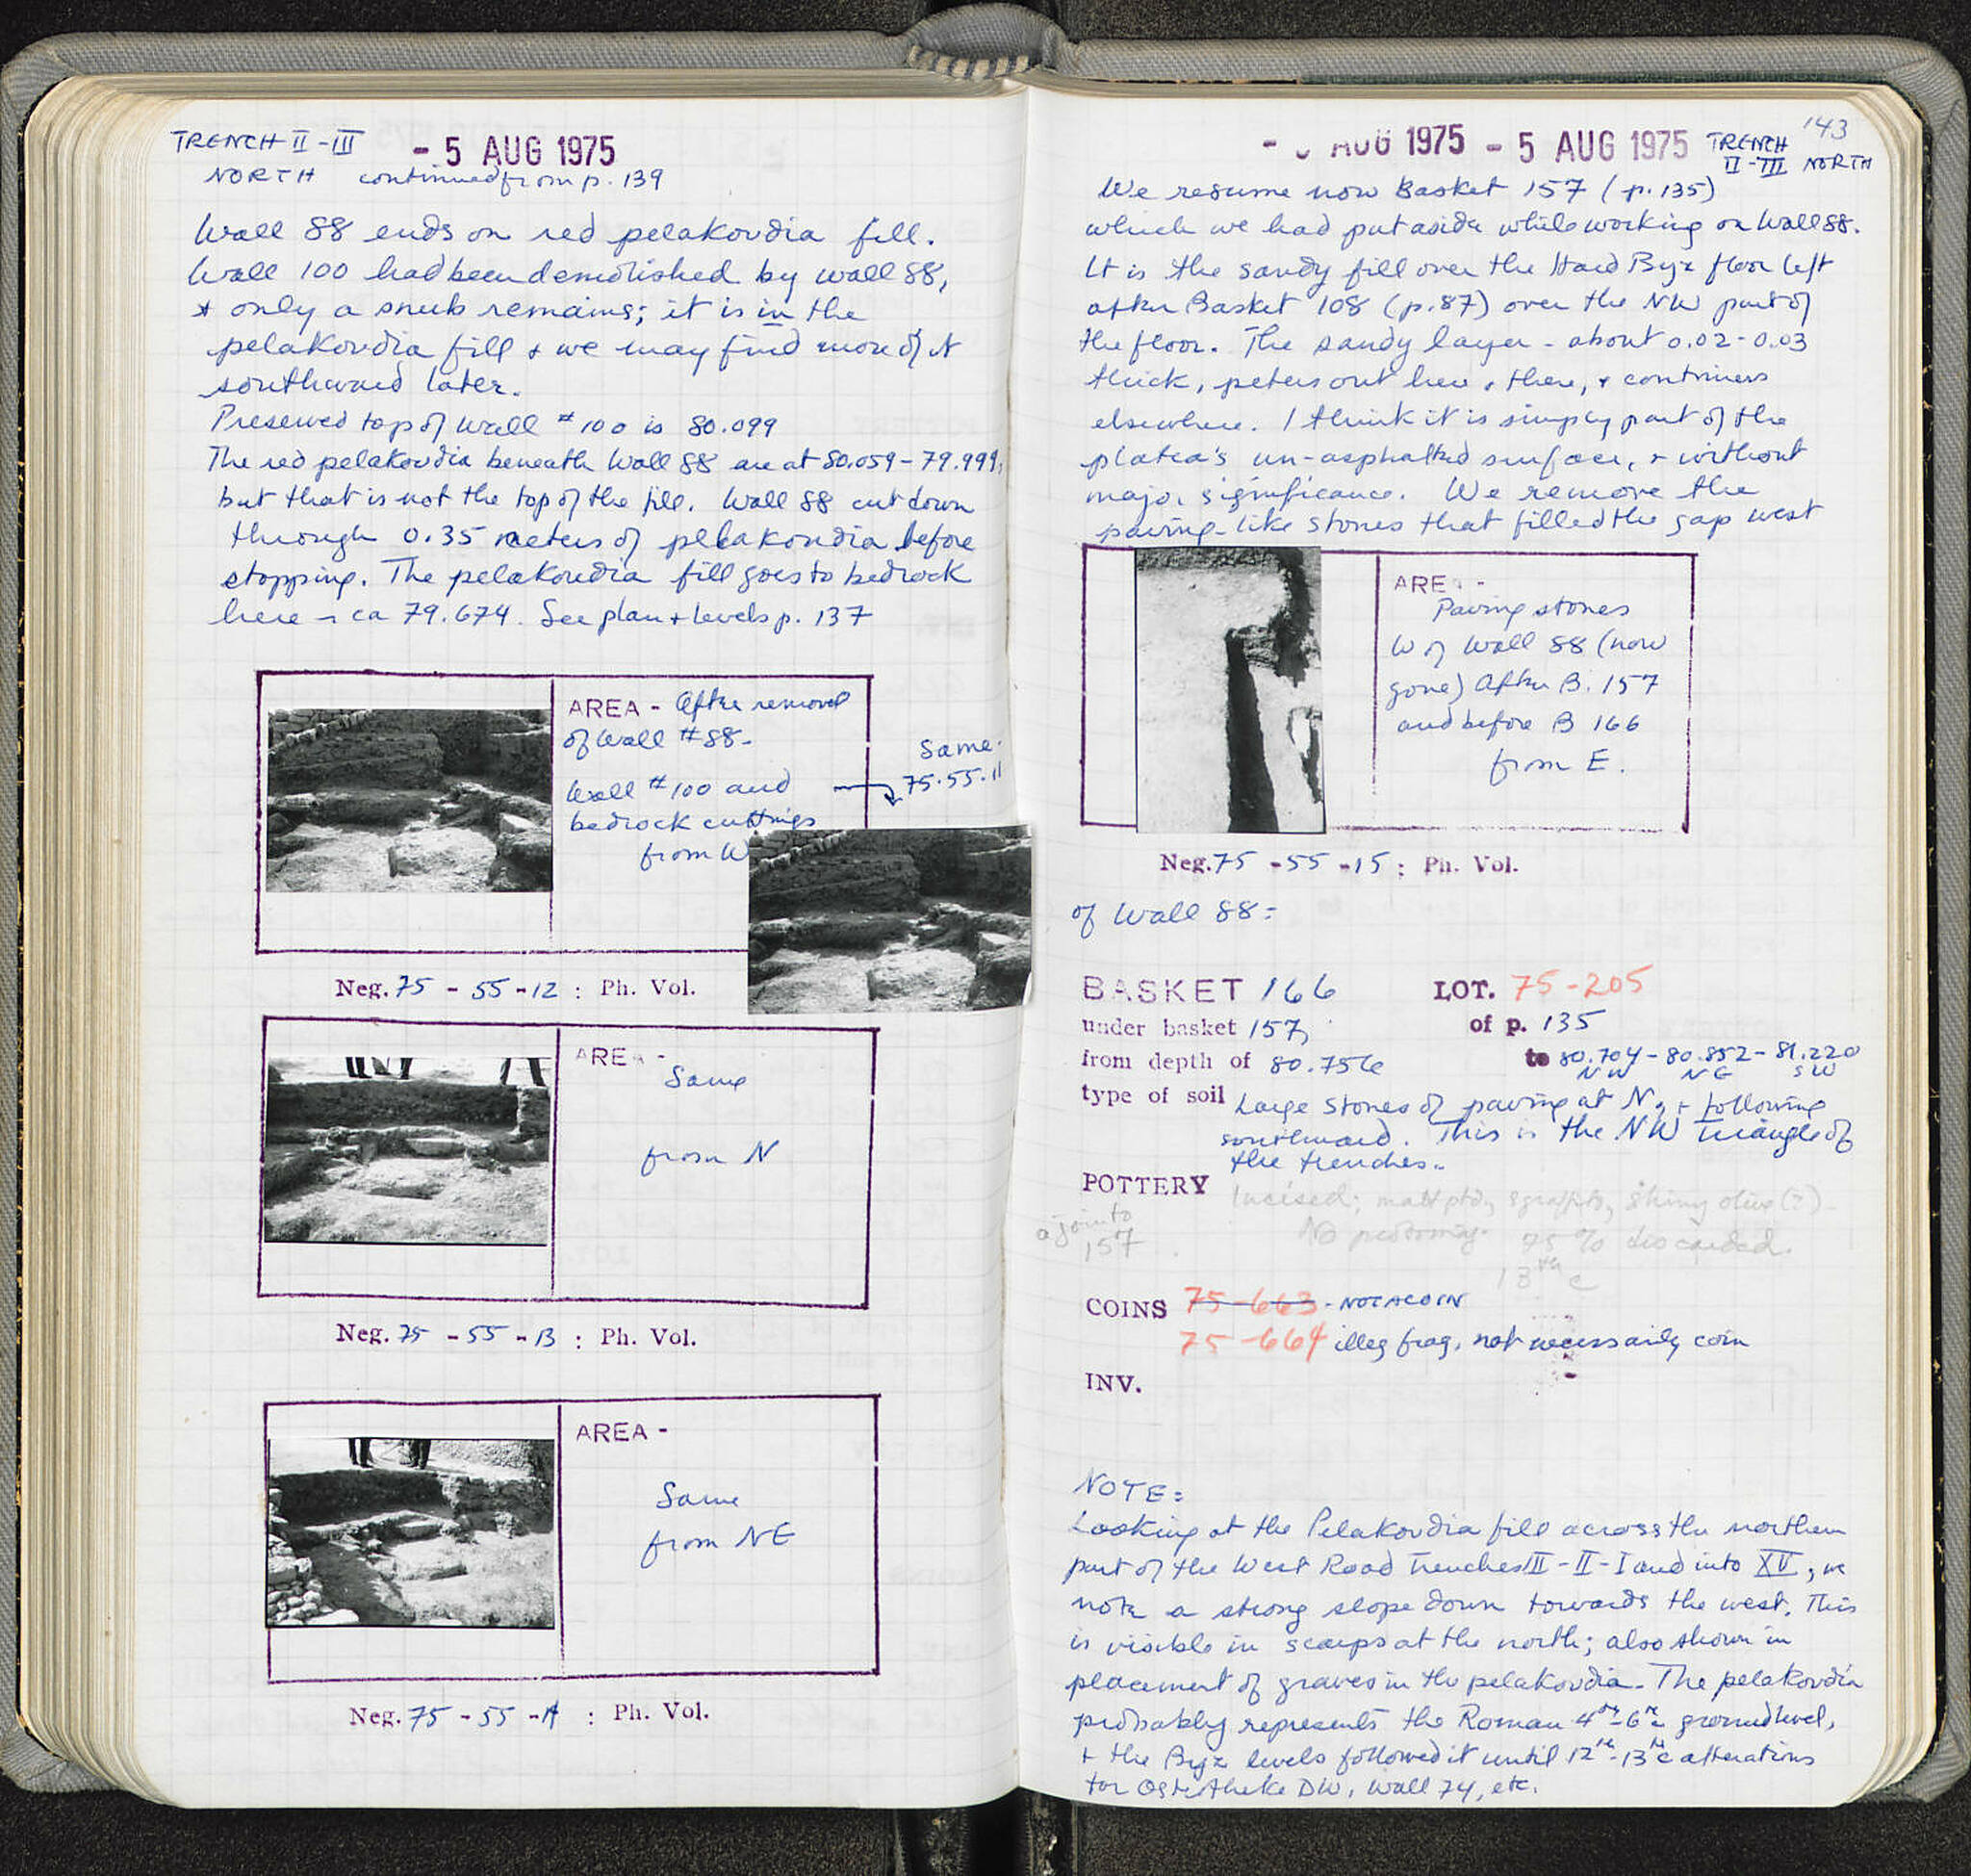 TRENCH II-III - 5 AUG 1975
NORTH continued from p. 139
Wall 88 ends on red pelakoudia fill.
Wall 100 had been demolished by wall 88,
+ only a snub remains; it is in the
pelakoudia fill + we may find more of it
southward later.
Preserved top of Wall #100 is 80.099
The red pelakoudia beneath Wall 88 are at 80.059-79.999,
but that is not the top of the fill. Wall 88 cut down
through 0.35 meters of pelakoudia before
stopping. The pelakoudia fill goes to bedrock
here - ca 79.674. See plan + levels p. 137
AREA - After removal
of Wall #88-
Wall #100 and
bedrock cuttings
from W
Same
75.55.11
Neg. 75 - 55 - 12 : Ph. Vol.
AREA -
Same
from N
Neg. 75 - 55 - 13 : Ph. Vol.
AREA -
Same
from NE
Neg. 75 - 55 - 14 : Ph. Vol.
143
AUG 1975 - 5 AUG 1975 TRENCH
II-III NORTH
We resume now Basket 157 (p. 135)
which we had put aside while working on Wall 88.
It is the sandy fill over the Hard Byz floor left
after Basket 108 (p. 87) over the NW part of
the floor. The sandy layer - about 0.02-0.03
thick, peters out here + there, + continues
elsewhere. I think it is simply part of the
platea's un-asphalted surface, + without
major significance. We remove the
paving-like stones that filled the gap west
AREA -
Paving stones
W of Wall 88 (now
gone) After B. 157
and before B 166
from E.
Neg. 75 - 55 - 15 : Ph. Vol.
of Wall 88:
BASKET 166 LOT. 75-205
under basket 157, of p. 135
from depth of 80.756 to 80.704 - 80.852 - 81.220
NW NE SW
type of soil Large stones of paving at N, + following
southward. This is the NW triangle of
the trenches.
POTTERY Incised; matt ptd, sgraffito, shiny olive (?)
a join to
157
No pre-Roman. 75% discarded.
13th c
COINS 75-663 - NOT A COIN
75-664 illeg frag, not necessarily coin
INV.
NOTE:
Looking at the Pelakoudia fill across the northern
part of the West Road Trenches III-II-I and into XV, we
note a strong slope down towards the west. This
is visible in scarps at the north; also shown in
placement of graves in the pelakoudia. The pelakoudia
probably represents the Roman 4th-6th c ground level,
+ the Byz levels followed it until 12th-13th c alterations
for Ostotheke DW, Wall 74, etc.